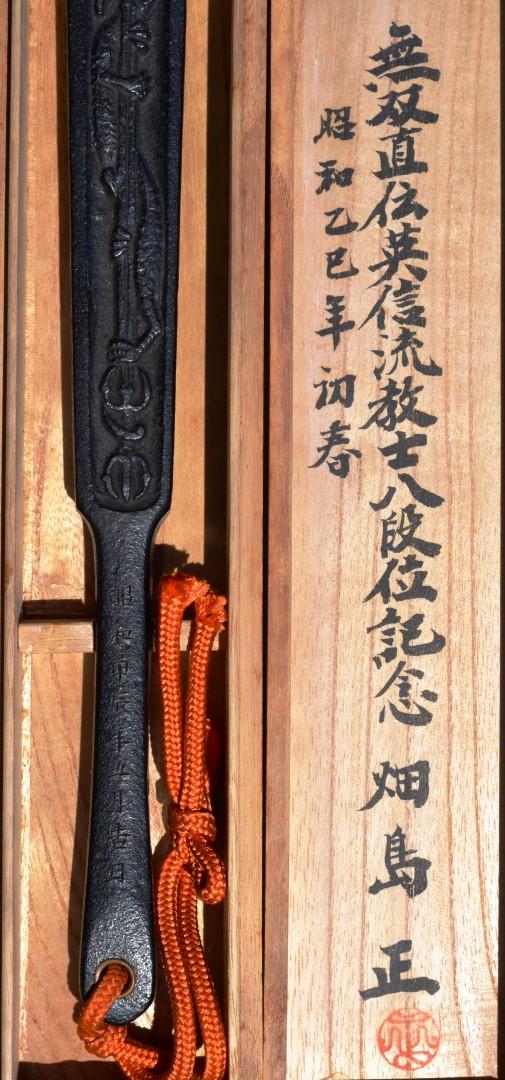 無双直伝英信流教士八段位記念 畑島正
昭和乙巳年初春
昭和甲辰年五月吉日